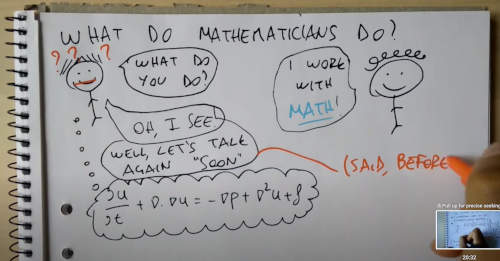 WHAT DO MATHEMATICIANS DO?
? ? ?
WHAT DO
YOU DO?
I WORK
WITH
MATH!
OH, I SEE!
WELL, LET'S TALK
AGAIN "SOON"
(SAID, BEFORE
∂u
∂t
+ D.Du = -Dp + D²u + f
Pull up for precise seeking
20:32